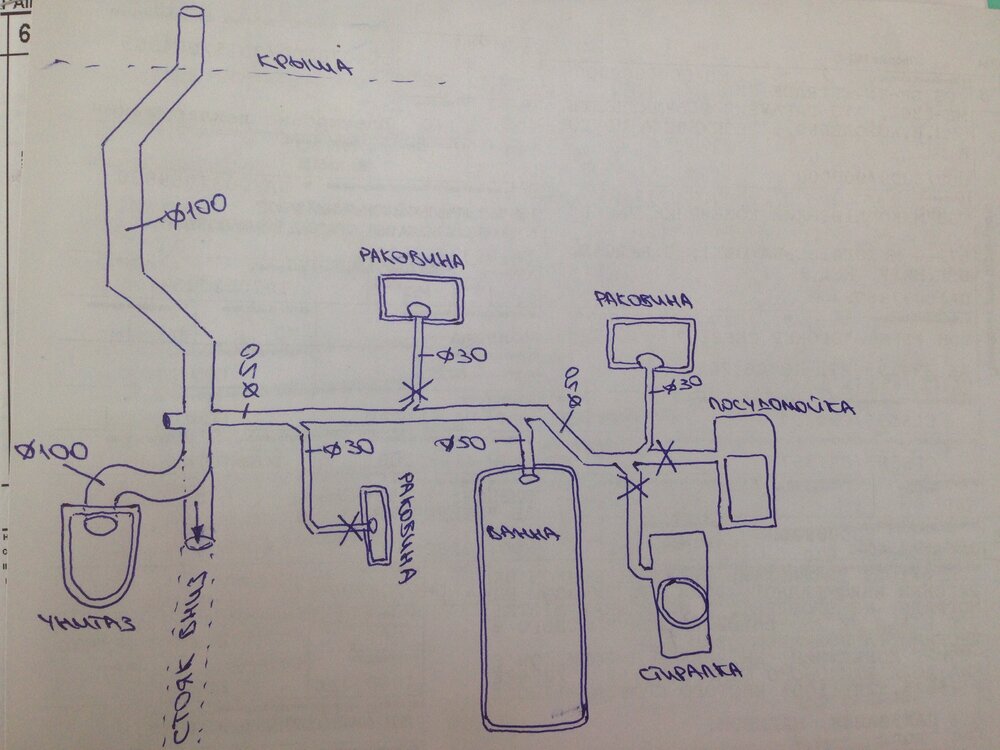 6
КРЫША
ø100
РАКОВИНА
ø30
РАКОВИНА
ø30
ø50
ø50
ПОСУДОМОЙКА
ø100
ø30
ø50
РАКОВИНА
ВАННА
УНИТАЗ
СТОЯК ВНИЗ
СТИРАЛКА